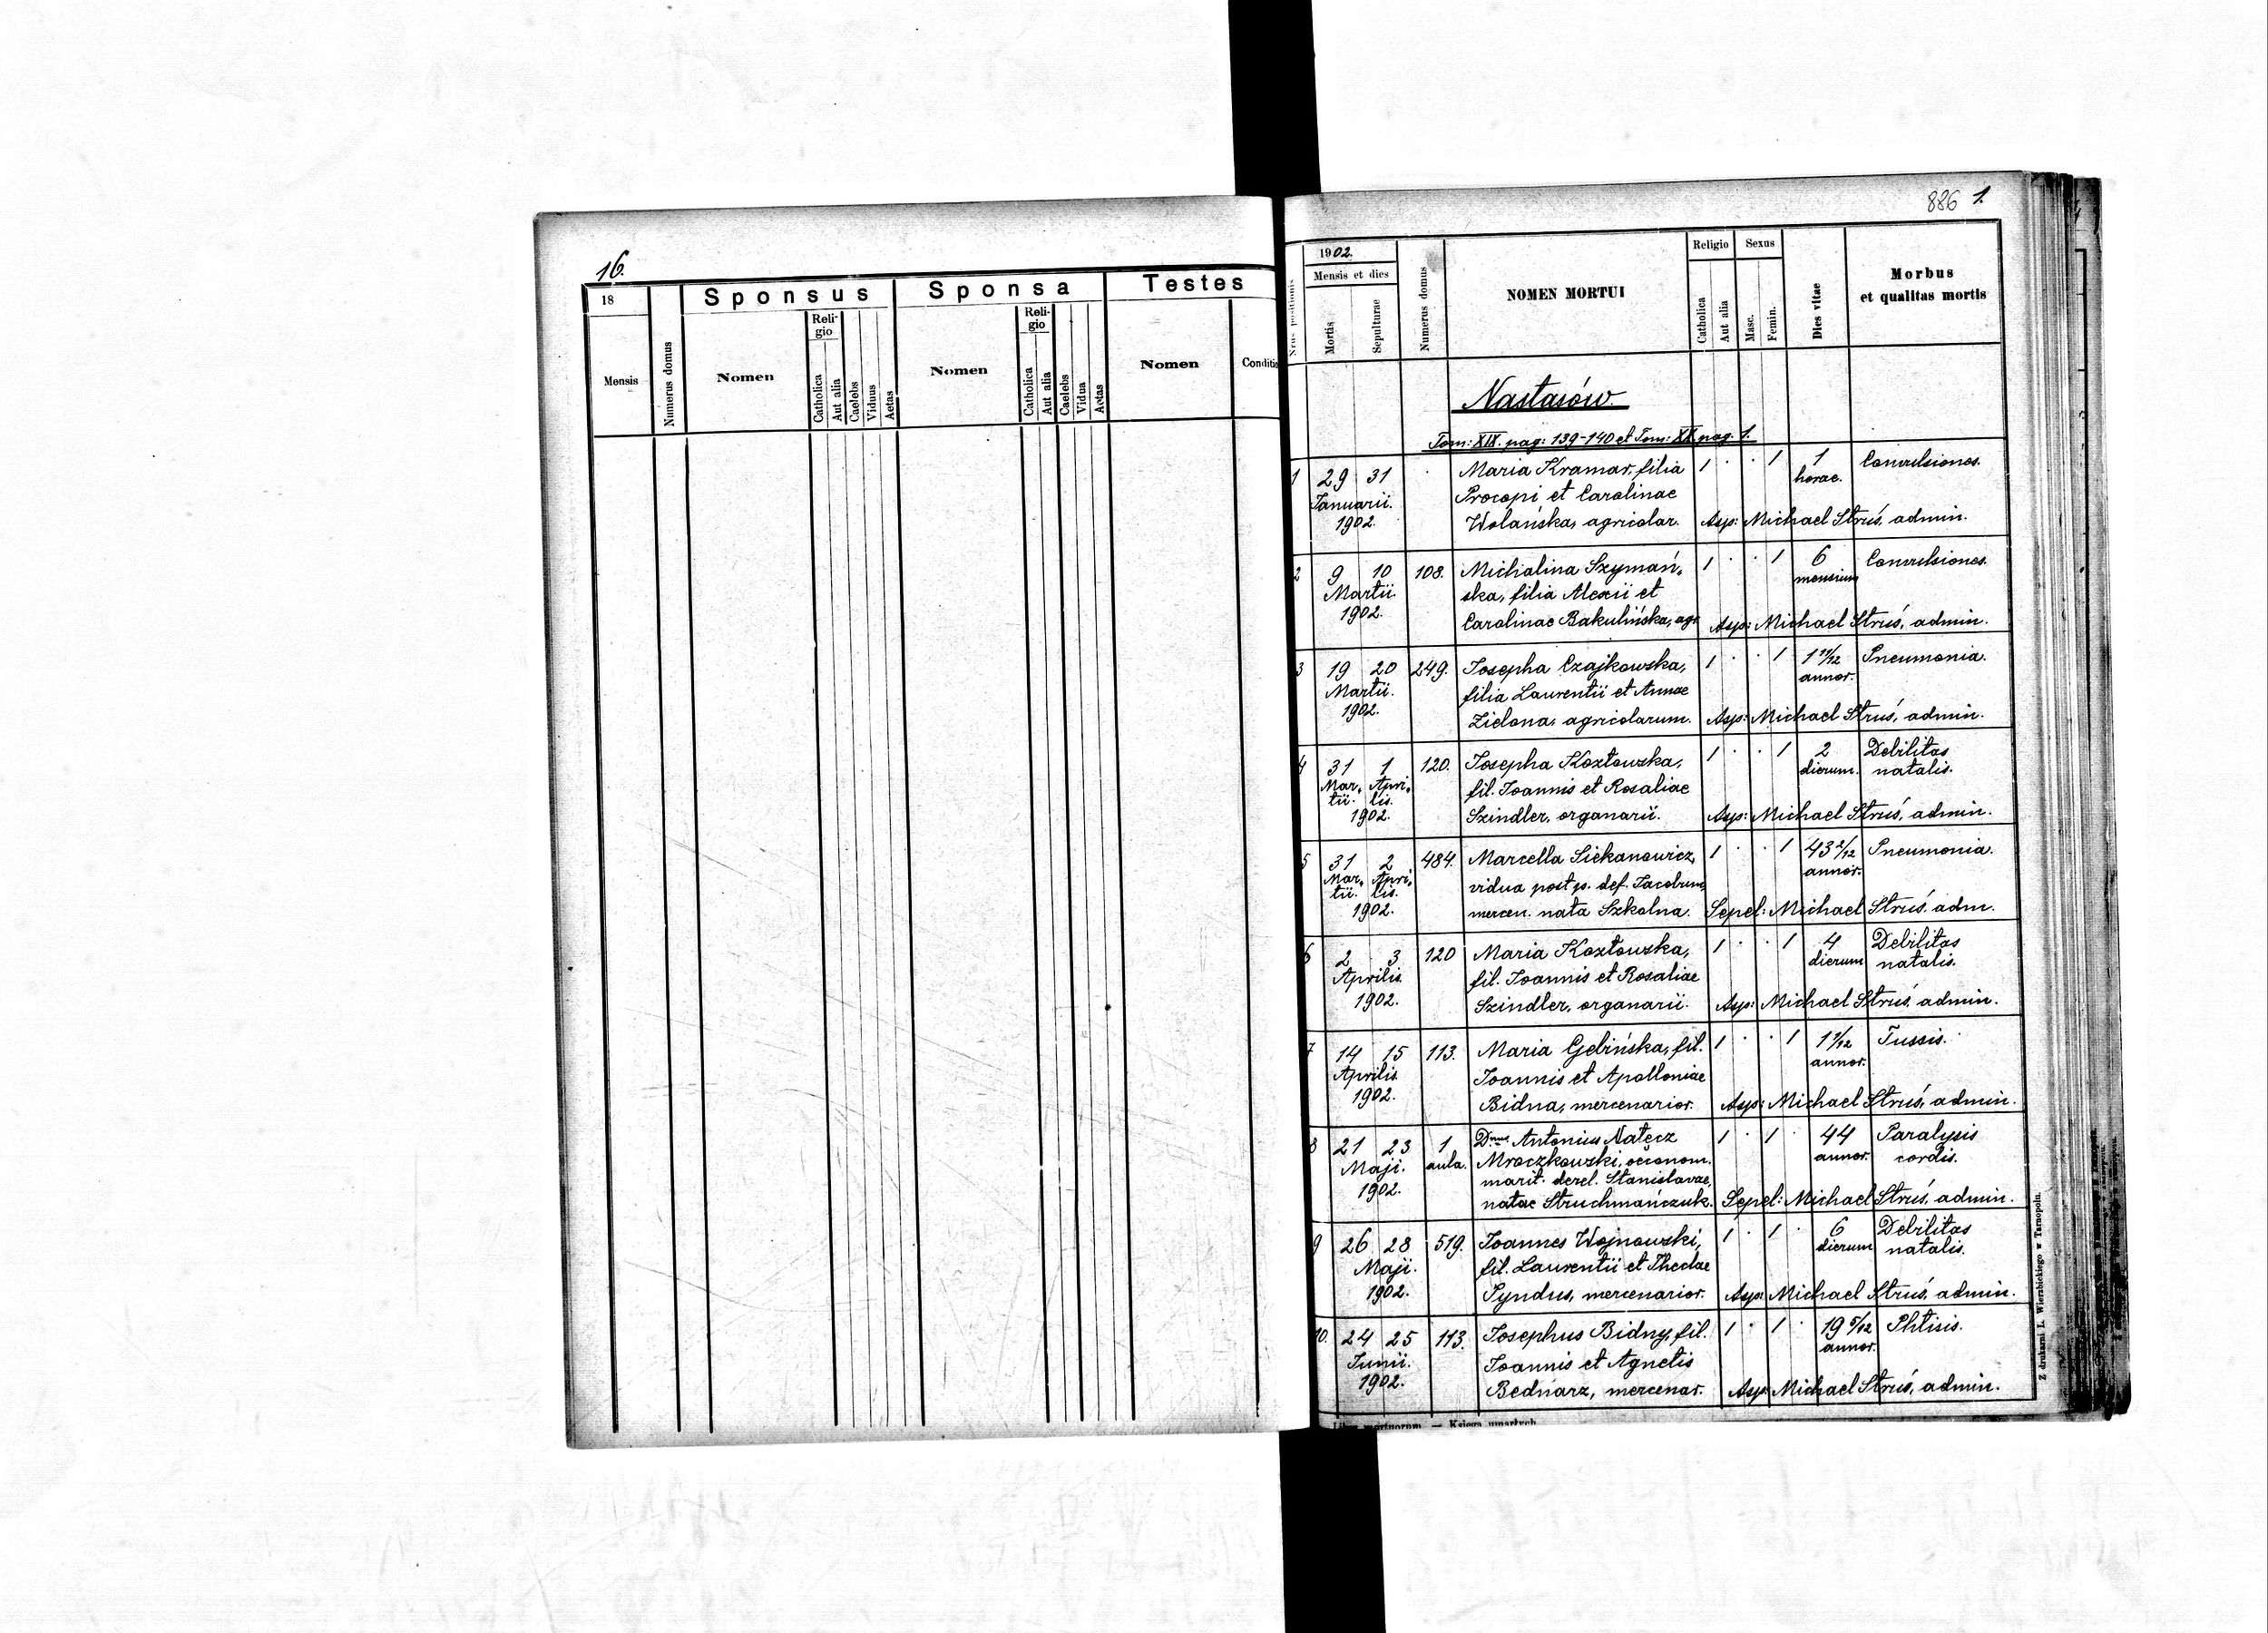 16.
18
Mensis
Numerus domus
Sponsus
Nomen
Religio
Catholica
Aut alia
Caelebs
Viduus
Aetas
Sponsa
Nomen
Religio
Catholica
Aut alia
Caelebs
Vidua
Aetas
Testes
Nomen
Conditi
886 1.
Nrus positionis
1902.
Mensis et dies
Mortis
Sepulturae
Numerus domus
NOMEN MORTUI
Religio
Catholica
Aut alia
Sexus
Masc.
Femin.
Dies vitae
Morbus
et qualitas mortis
Nastasów.
Tom: XIX. pag: 139-140 et Tom: XX pag. 1.
1 29 31 Maria Kramar, filia 1 · · 1 1 Convulsiones.
Januarii. Procopi et Carolinae horae.
1902. Wolańska, agricolar. Asp: Michael Struś, admin.
2 9 10 108. Michalina Szymań- 1 · · 1 6 Convulsiones.
Martii ska, filia Alexii et mensium
1902. Carolinae Bakulińska, agr. Asp: Michael Struś, admin.
3 19 20 249. Josepha Czajkowska, 1 · · 1 1 11/12 Pneumonia.
Martii. filia Laurentii et Annae annor.
1902. Zielona, agricolarum. Asp: Michael Struś, admin.
4 31 1 120. Josepha Kozłowska, 1 · · 1 2 Debilitas
Mar- Apri- fil. Joannis et Rosaliae dierum. natalis.
tii. lis.
1902. Szindler, organarii. Asp: Michael Struś, admin.
5 31 2 484. Marcella Siekanowicz, 1 · · 1 43 2/12 Pneumonia.
Mar- Apri- vidua post p. def. Jacobum, annor.
tii. lis.
1902. mercen. nata Szkolna. Sepel: Michael Struś, adm.
6 2 3 120 Maria Kozłowska, 1 · · 1 4 Debilitas
Aprilis. fil. Joannis et Rosaliae dierum natalis.
1902. Szindler, organarii. Asp: Michael Struś, admin.
7 14 15 113. Maria Gebińska, fil. 1 · · 1 1 1/12 Tussis.
Aprilis. Joannis et Apolloniae annor.
1902. Bidna, mercenarior. Asp: Michael Struś, admin.
8 21 23 1 Dnus Antonius Nałęcz 1 · 1 · 44 Paralysis
Maji. aula. Mroczkowski, oeconom. annor. cordis.
marit. derel. Stanislavae,
1902. natae Struchmańczuk. Sepel: Michael Struś, admin.
9 26 28 519. Joannes Wojnowski, 1 · 1 · 6 Debilitas
Maji. fil. Laurentii et Theclae dierum natalis.
1902. Pyndus, mercenarior. Asp: Michael Struś, admin.
10. 24 25 113. Josephus Bidny, fil. 1 · 1 · 19 5/12 Phtisis.
Junii. Joannis et Agnetis annor.
1902. Bednarz, mercenar. Asp: Michael Struś, admin.
Liber mortuorum — Księga umarłych
Z drukarni L. Wierzbickiego w Tarnopolu.